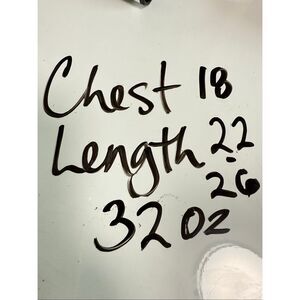 Chest 18
Length 22
- 26
32 oz